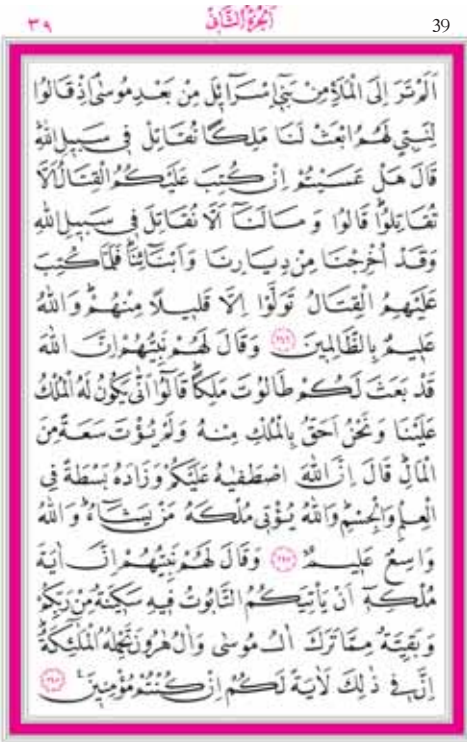 ٣٩ الجزء الثاني 39
اَلَمْ تَرَ اِلَى الْمَلَأِ مِنْ بَنٖٓي اِسْرَٓائٖلَ مِنْ بَعْدِ مُوسٰى اِذْ قَالُوا
لِنَبِيٍّ لَهُمُ ابْعَثْ لَنَا مَلِكًا نُقَاتِلْ فٖي سَبٖيلِ اللّٰهِ
قَالَ هَلْ عَسَيْتُمْ اِنْ كُتِبَ عَلَيْكُمُ الْقِتَالُ اَلَّا
تُقَاتِلُوا قَالُوا وَمَا لَنَٓا اَلَّا نُقَاتِلَ فٖي سَبٖيلِ اللّٰهِ
وَقَدْ اُخْرِجْنَا مِنْ دِيَارِنَا وَاَبْنَٓائِنَا فَلَمَّا كُتِبَ
عَلَيْهِمُ الْقِتَالُ تَوَلَّوْا اِلَّا قَلٖيلًا مِنْهُمْ وَاللّٰهُ
عَلٖيمٌ بِالظَّالِمٖينَ ﴿٢٤٦﴾ وَقَالَ لَهُمْ نَبِيُّهُمْ اِنَّ اللّٰهَ
قَدْ بَعَثَ لَكُمْ طَالُوتَ مَلِكًا قَالُٓوا اَنّٰى يَكُونُ لَهُ الْمُلْكُ
عَلَيْنَا وَنَحْنُ اَحَقُّ بِالْمُلْكِ مِنْهُ وَلَمْ يُؤْتَ سَعَةً مِنَ
الْمَالِ قَالَ اِنَّ اللّٰهَ اصْطَفٰيهُ عَلَيْكُمْ وَزَادَهُ بَسْطَةً فِي
الْعِلْمِ وَالْجِسْمِ وَاللّٰهُ يُؤْتٖي مُلْكَهُ مَنْ يَشَٓاءُ وَاللّٰهُ
وَاسِعٌ عَلٖيمٌ ﴿٢٤٧﴾ وَقَالَ لَهُمْ نَبِيُّهُمْ اِنَّ اٰيَةَ
مُلْكِهٖٓ اَنْ يَأْتِيَكُمُ التَّابُوتُ فٖيهِ سَكٖينَةٌ مِنْ رَبِّكُمْ
وَبَقِيَّةٌ مِمَّا تَرَكَ اٰلُ مُوسٰى وَاٰلُ هٰرُونَ تَحْمِلُهُ الْمَلٰٓئِكَةُ
اِنَّ فٖي ذٰلِكَ لَاٰيَةً لَكُمْ اِنْ كُنْتُمْ مُؤْمِنٖينَ ﴿٢٤٨﴾